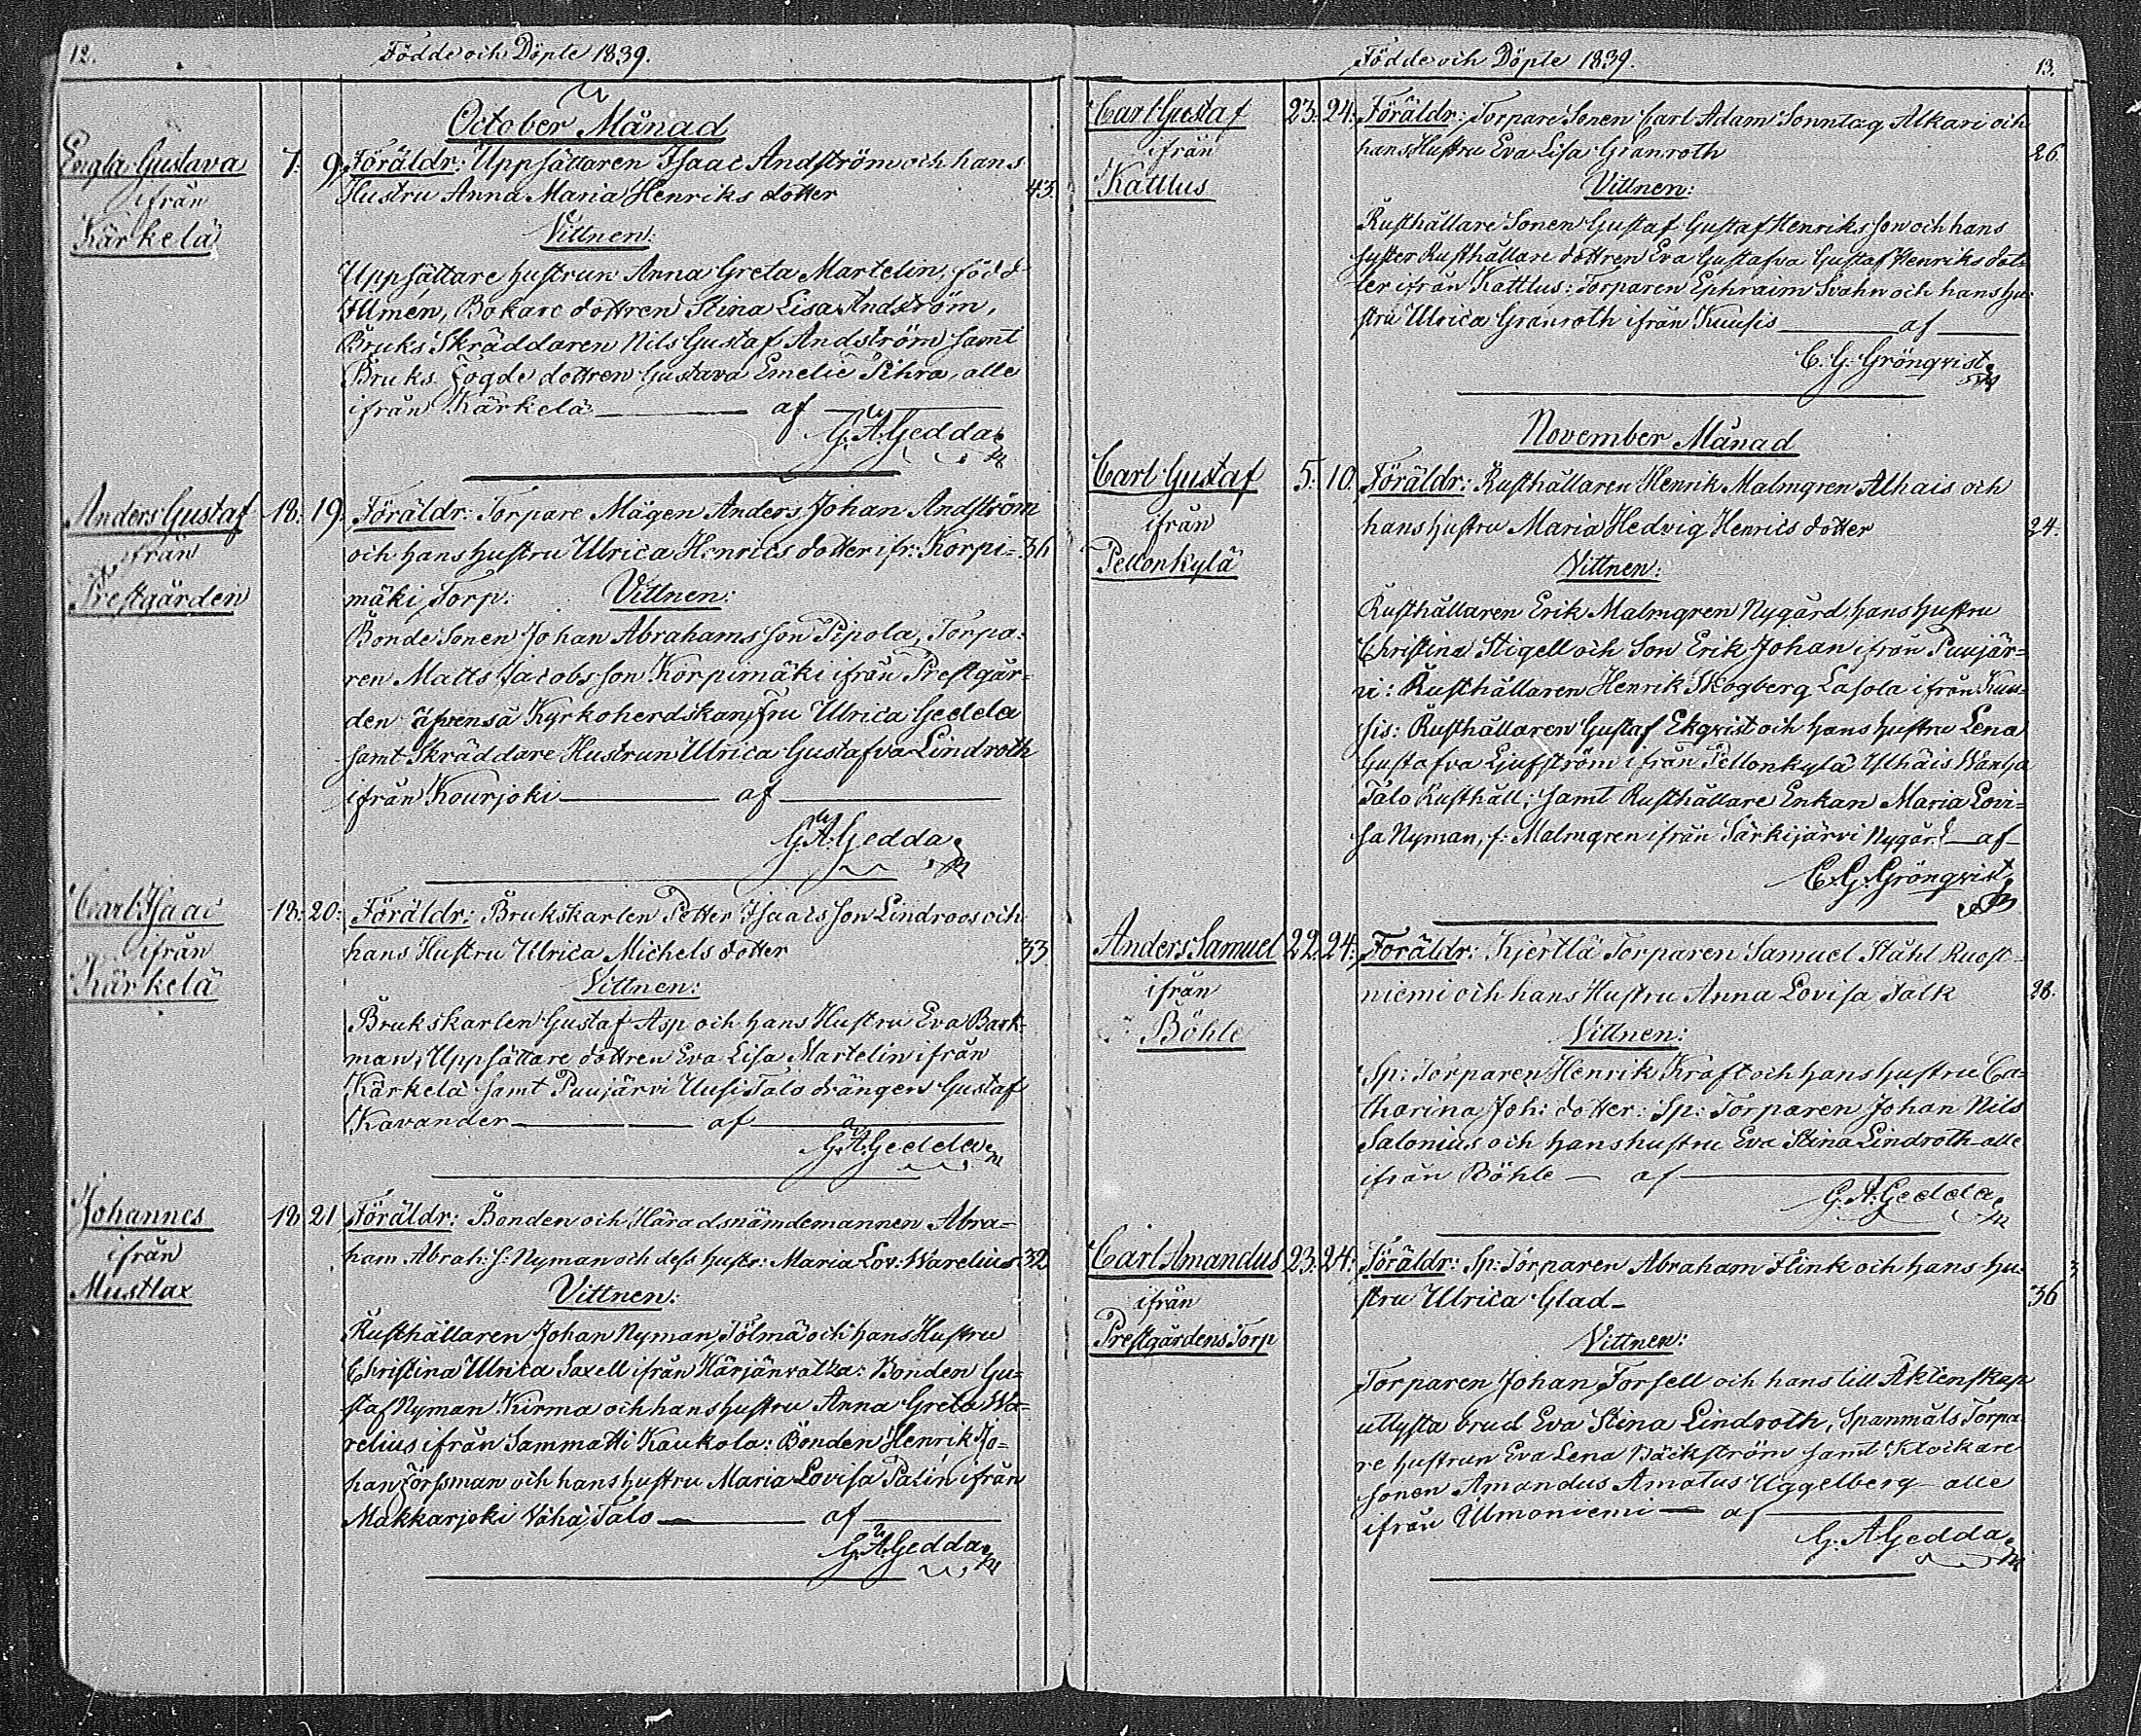 12. Födde och Döpte 1839.
October Månad
Engla Gustava 7. 9. Föräldr: Uppsättaren Isaac Andström och hans
ifrån Hustru Anna Maria Henriks dotter 43.
Kärkelä Vittnen:
Uppsättare hustrun Anna Greta Martelin, född
Ilmén, Bokare dottren Stina Lisa Andström,
Bruks Skräddaren Nils Gustaf Andström samt
Bruks Fogde dottren Gustava Emelie Pihra, alle
ifrån Kärkelä af
G. A. Gedda
Anders Gustaf 18. 19. Föräldr: Torpare Mågen Anders Johan Andström
ifrån och hans hustru Ulrica Henrics dotter ifr: Korpi= 36
Prestgården mäki Torp: Vittnen:
Bonde Sonen Johan Abrahams son Pipola, Torpa=
ren Matts Jacobs son Korpimäki ifrån Prestgår=
den äfvenså Kyrkoherdskan Fru Ulrica Gedda
samt Skräddare Hustrun Ulrica Gustafva Lindroth
ifrån Kourjoki af
G. A. Gedda
Carl Isaac 18. 20. Föräldr: Brukskarlen Petter Isaacs son Lindroos och
ifrån hans Hustru Ulrica Michels dotter 33.
Kärkelä Vittnen:
Brukskarlen Gustaf Asp och hans Hustru Eva Bark=
man, Uppsättare dottren Eva Lisa Martelin ifrån
Kärkelä samt Puujärvi Uusi Talo drängen Gustaf
Kavander af
G. A. Gedda
Johannes 18. 21 Föräldr: Bonden och Häradsnämdemannen Abra=
ifrån ham Abrah: s: Nyman och dess hustr: Maria Lov: Warelius 32
Mustlax Vittnen:
Rusthållaren Johan Nyman Tölmä och hans Hustru
Christina Ulrica Saxell ifrån Härjänvatza: Bonden Gu=
staf Nyman Kirma och hans hustru Anna Greta Wa=
relius ifrån Sammatti Kaukola: Bonden Henrik Jo=
han Forssman och hans hustru Maria Lovisa Palin ifrån
Makkarjoki Vähä Talo af
G. A. Gedda
Födde och Döpte 1839. 13.
Carl Gustaf 23. 24. Föräldr: Torpare Sonen Carl Adam Sonntag Alkari och
ifrån hans Hustru Eva Lisa Granroth 26.
Kattlus Vittnen:
Rusthållare Sonen Gustaf Gustaf Henriks son och hans
syster Rusthållare dottren Eva Gustafva Gustaf Henriks dot=
ter ifrån Kattlus: Torparen Ephraim Svahn och hans hu=
stru Ulrica Granroth ifrån Kuusis af
C. G. Grönqvist
November Månad
Carl Gustaf 5. 10. Föräldr: Rusthållaren Henrik Malmgren Alhais och
ifrån hans hustru Maria Hedvig Henrics dotter 24.
Pellonkylä Vittnen:
Rusthållaren Erik Malmgren Nygård, hans hustru
Christina Stigell och Son Erik Johan ifrån Puujär=
vi: Rusthållaren Henrik Skogberg Lasola ifrån Kuu=
sis: Rusthållaren Gustaf Ekqvist och hans hustru Lena
Gustafva Ljufström ifrån Pellonkylä Ylhäis Wanha
Talo Rusthåll; samt Rusthållare Enkan Maria Lovi=
sa Nyman, f: Malmgren ifrån Särkijärvi Nygård af
C. G. Grönqvist
Anders Samuel 22. 24. Föräldr: Kjertlä Torparen Samuel Ståhl Ruost=
ifrån niemi och hans Hustru Anna Lovisa Falk 28.
Böhle Vittnen:
Sp: Torparen Henrik Kraft och hans hustru Ca=
tharina Joh: dotter: Sp: Torparen Johan Nils
Salonius och hans hustru Eva Stina Lindroth alle
ifrån Böhle af
G. A. Gedda
Carl Amandus 23. 24. Föräldr: Sp: Torparen Abraham Flink och hans hu=
ifrån stru Ulrica Glad 36
Prestgårdens Torp Vittnen:
Torparen Johan Forsell och hans till Äktenskap
utlysta brud Eva Stina Lindroth, Spanmåls Torpa=
re hustrun Eva Lena Bäckström samt Klockare
sonen Amandus Amatus Uggelberg alle
ifrån Ulmoniemi af
G. A. Gedda